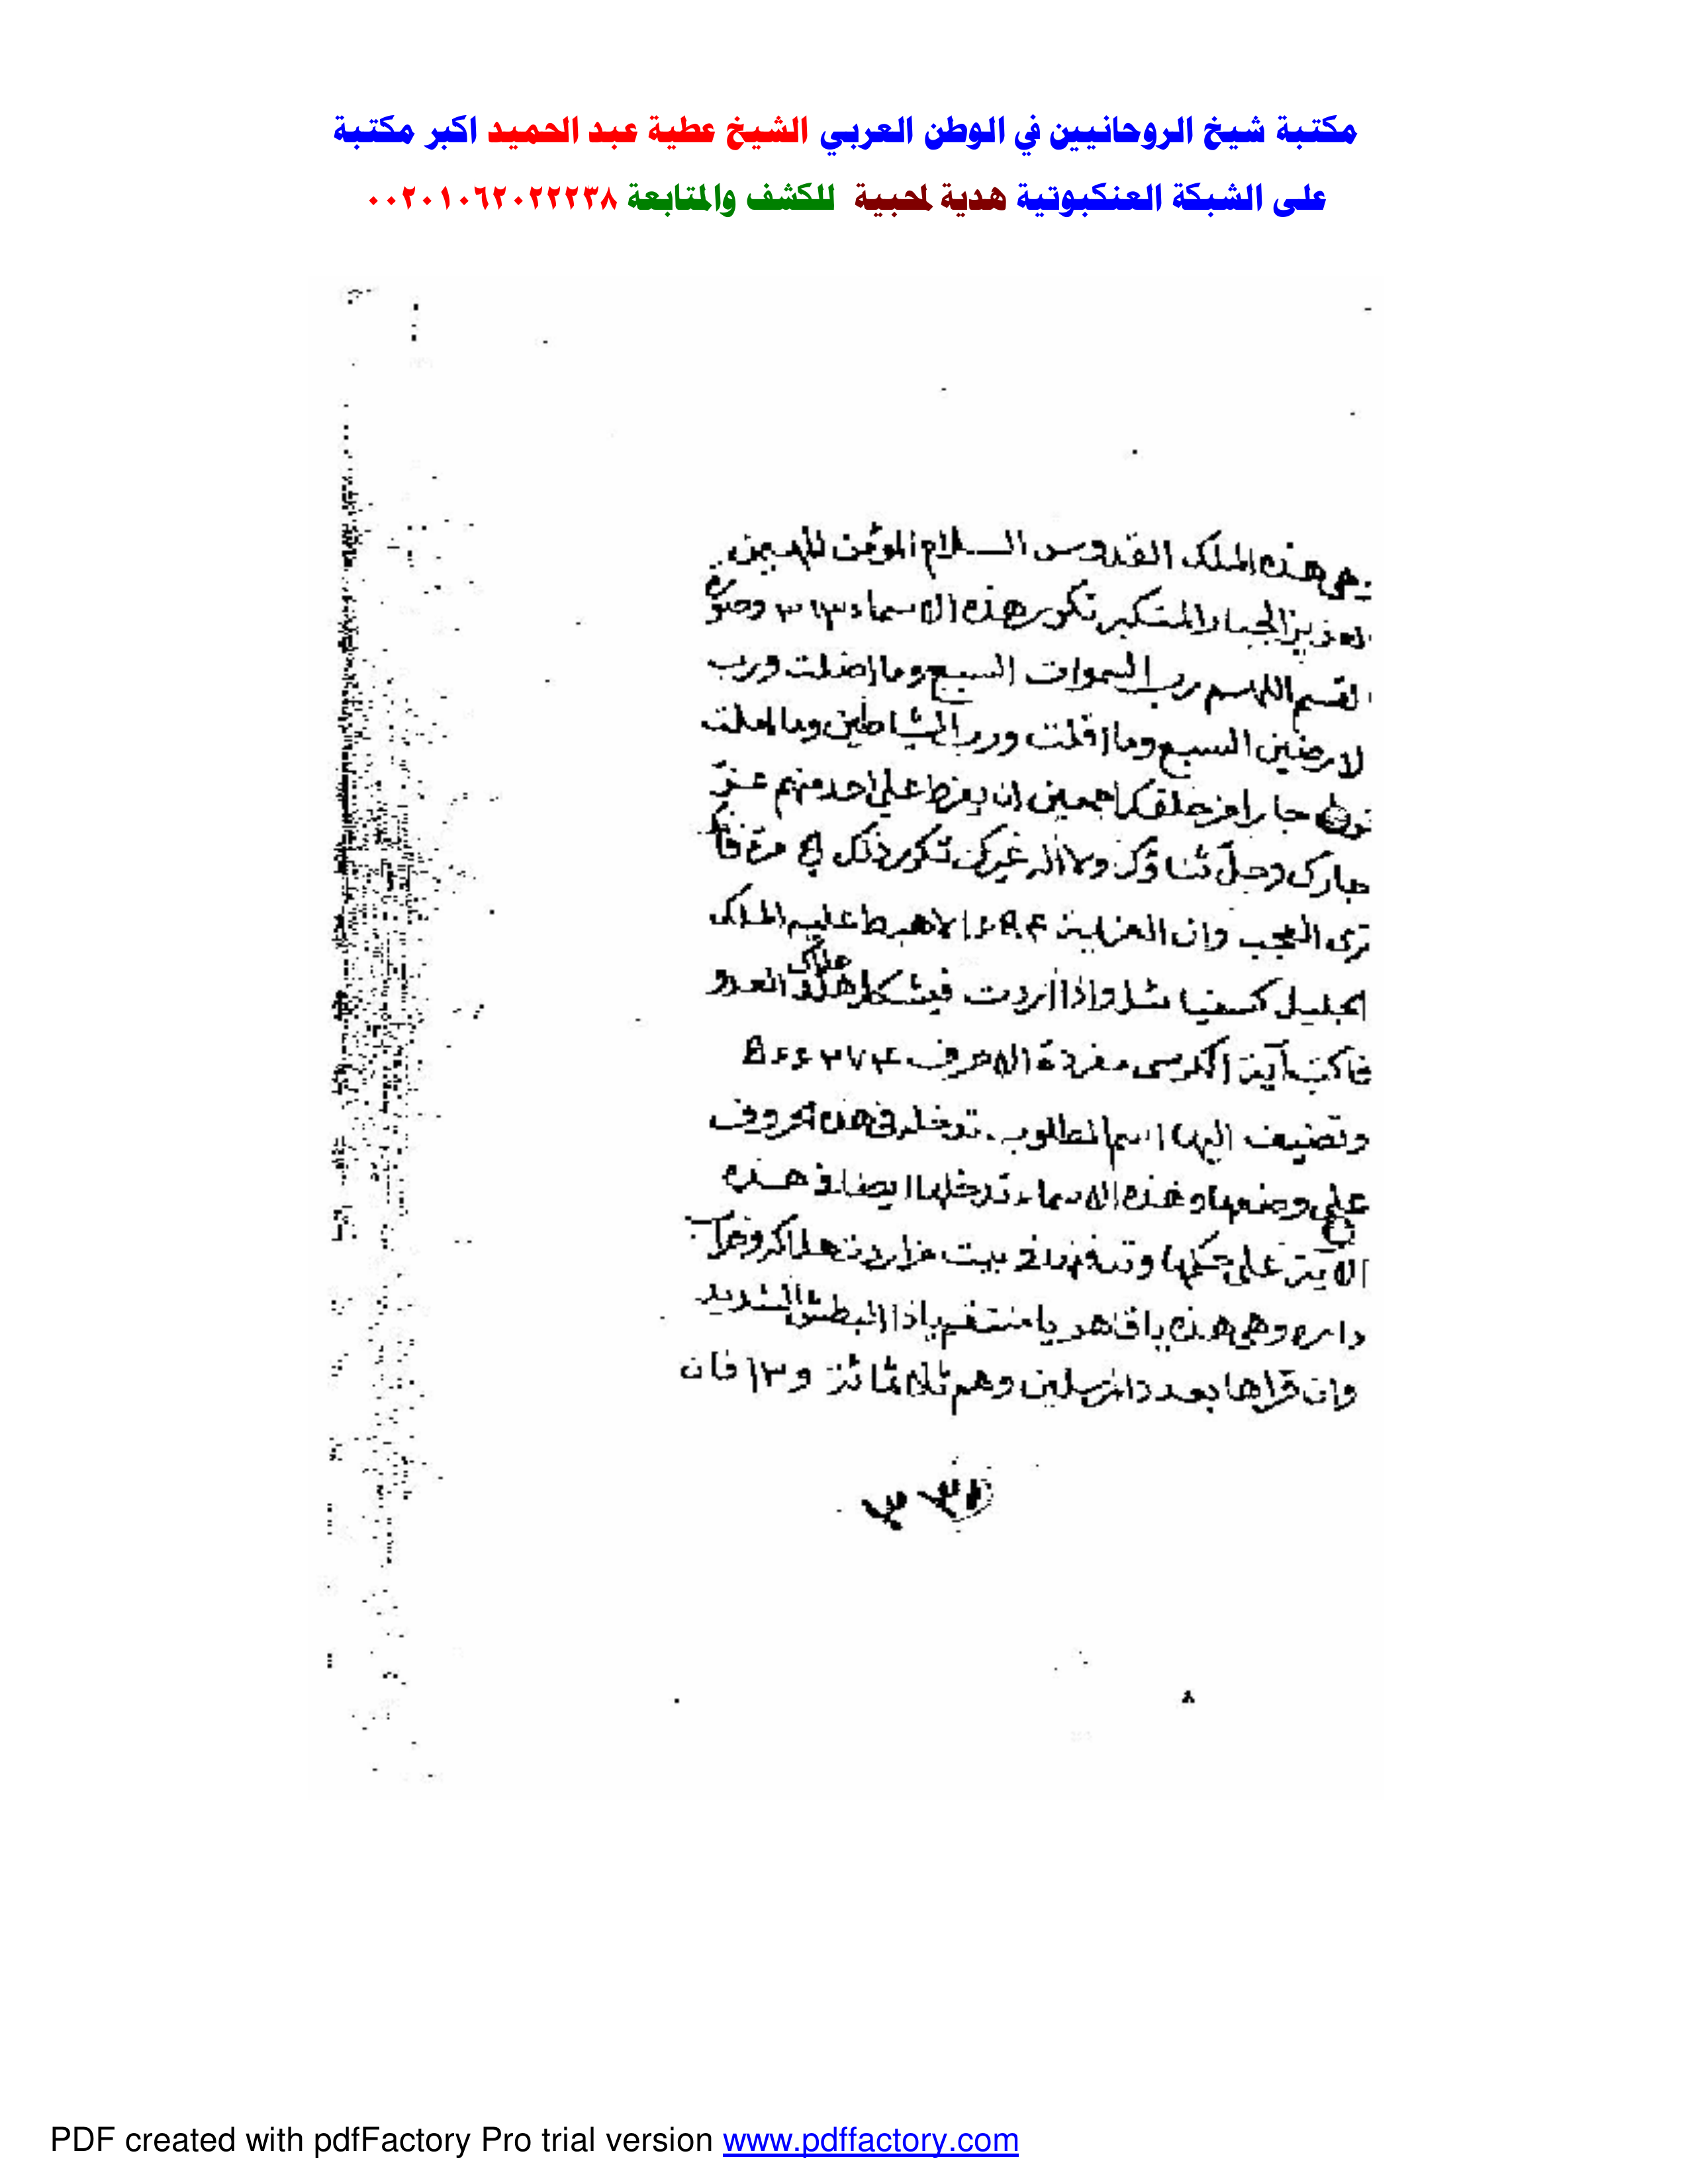 مكتبة شيخ الروحانيين في الوطن العربي الشيخ عطية عبد الحميد اكبر مكتبة
على الشبكة العنكبوتية هدية لمحبية للكشف والمتابعة ٠٠٢٠١٠٦٢٠٢٢٢٣٨
هى هذه الملك القدوس السلام المؤمن المهيمن
العزيز الجبار المتكبر تكرر هذه الاسماء ٣١٣
القسم اللهم رب السموات السبع وما اضلت ورب
لارضين السبع وما اقلت ورب الشياطين وما اضلت
جارا من خلقك اجمعين ان يفرط على احد منهم عز
جارك وجل ثناؤك ولا اله غيرك تكرر ذلك مرة
ترى العجب وان العزيمة الا هبط عليه الملك
الجليل واذا اردت العدو
فاكتب آية الكرسى مفردة الاحرف
وتضيف اليها اسم المطلوب تدخله فى هذه الحروف
على وضعها وهذه الاسماء تدخلها ايضا فى هذه
الآية على حكمها بيت من اردت
داره وهى هذه يا قاهر يا منتقم يا ذا البطش الشديد
وان قراها بعدد المرسلين وهم ثلاثمائة و ١٣ فان
٣١٣
PDF created with pdfFactory Pro trial version www.pdffactory.com